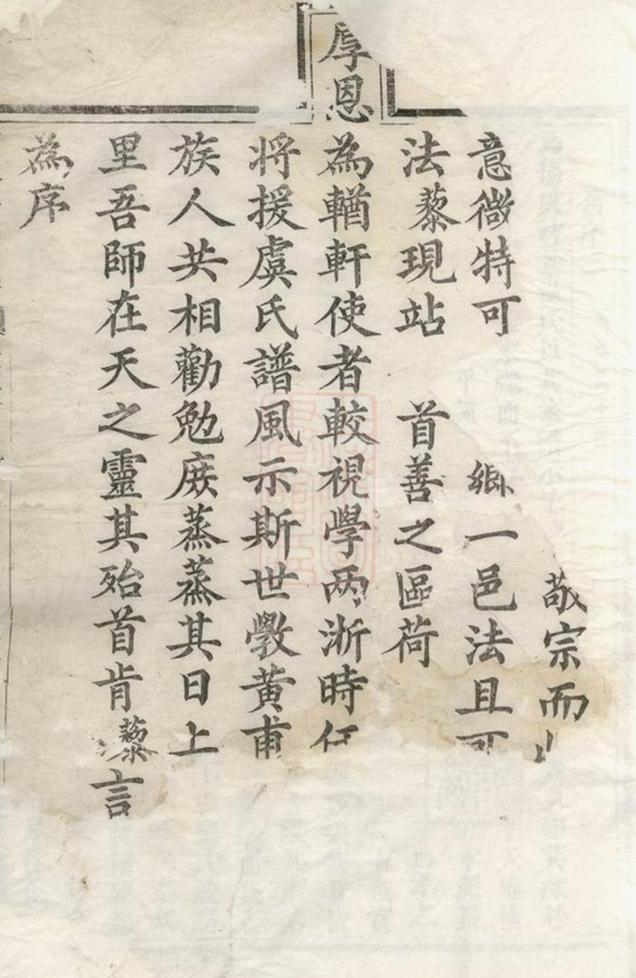 厚恩
敬宗而
意微特可鄉一邑法且可
法藜現站首善之區荷
為輶軒使者較視學兩浙時任
將援虞氏譜風示斯世斆黃甫
族人共相勸勉庶蒸蒸其日上
里吾師在天之靈其殆首肯藜言
為序